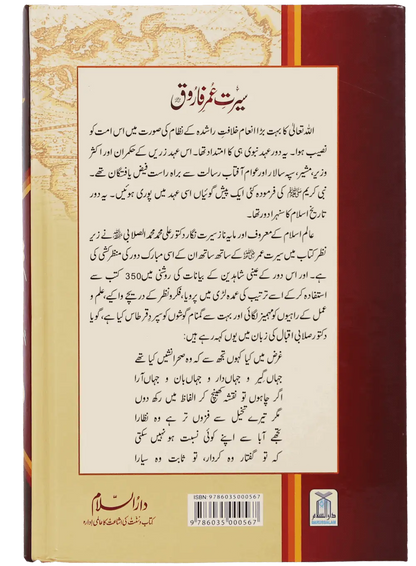 سیرتِ عمر فاروق
اللہ تعالیٰ کا بہت بڑا انعام خلافتِ راشدہ کے نظام کی صورت میں اس امت کو
نصیب ہوا۔ یہ دور عہد نبوی ہی کا امتداد تھا۔ اس عہد زریں کے حکمران اور اکثر
وزیر، مشیر، سپہ سالار اور عوام آفتاب رسالت سے براہ راست فیض یافتگان تھے۔
نبی کریم ﷺ کی فرمودہ کئی ایک پیش گوئیاں اسی عہد میں پوری ہوئیں۔ یہ دور
تاریخ اسلام کا سنہرا دور تھا۔
عالم اسلام کے معروف اور مایہ ناز سیرت نگار دکتور علی محمد محمد الصلابی نے زیرِ
نظر کتاب میں سیرت عمر کے ساتھ ساتھ ان کے اسی مبارک دور کی منظر کشی کی
ہے۔ اور اس دور کے عینی شاہدین کے بیانات کی روشنی میں 350 کتب سے
استفادہ کر کے اسے ترتیب کی عمدہ لڑی میں پرویا، فکر و نظر کے دریچے وا کیے، علم و
عمل کے راہیوں کو مہمیز لگائی اور بہت سے گمنام گوشوں کو سپردِ قرطاس کیا ہے، گویا
دکتور صلابی اقبال کی زبان میں یوں کہہ رہے ہیں:
غرض میں کیا کہوں تجھ سے کہ وہ صحرا نشیں کیا تھے
جہاں گیر و جہاں دار و جہاں بان و جہاں آرا
اگر چاہوں تو نقشہ کھینچ کر الفاظ میں رکھ دوں
مگر تیرے تخیل سے فزوں تر ہے وہ نظارا
تجھے آبا سے اپنے کوئی نسبت ہو نہیں سکتی
کہ تو گفتار وہ کردار، تو ثابت وہ سیارا
دارالسلام
کتاب و سنت کی اشاعت کا عالمی ادارہ
ISBN: 9786035000567
9 786035 000567
دارالسلام